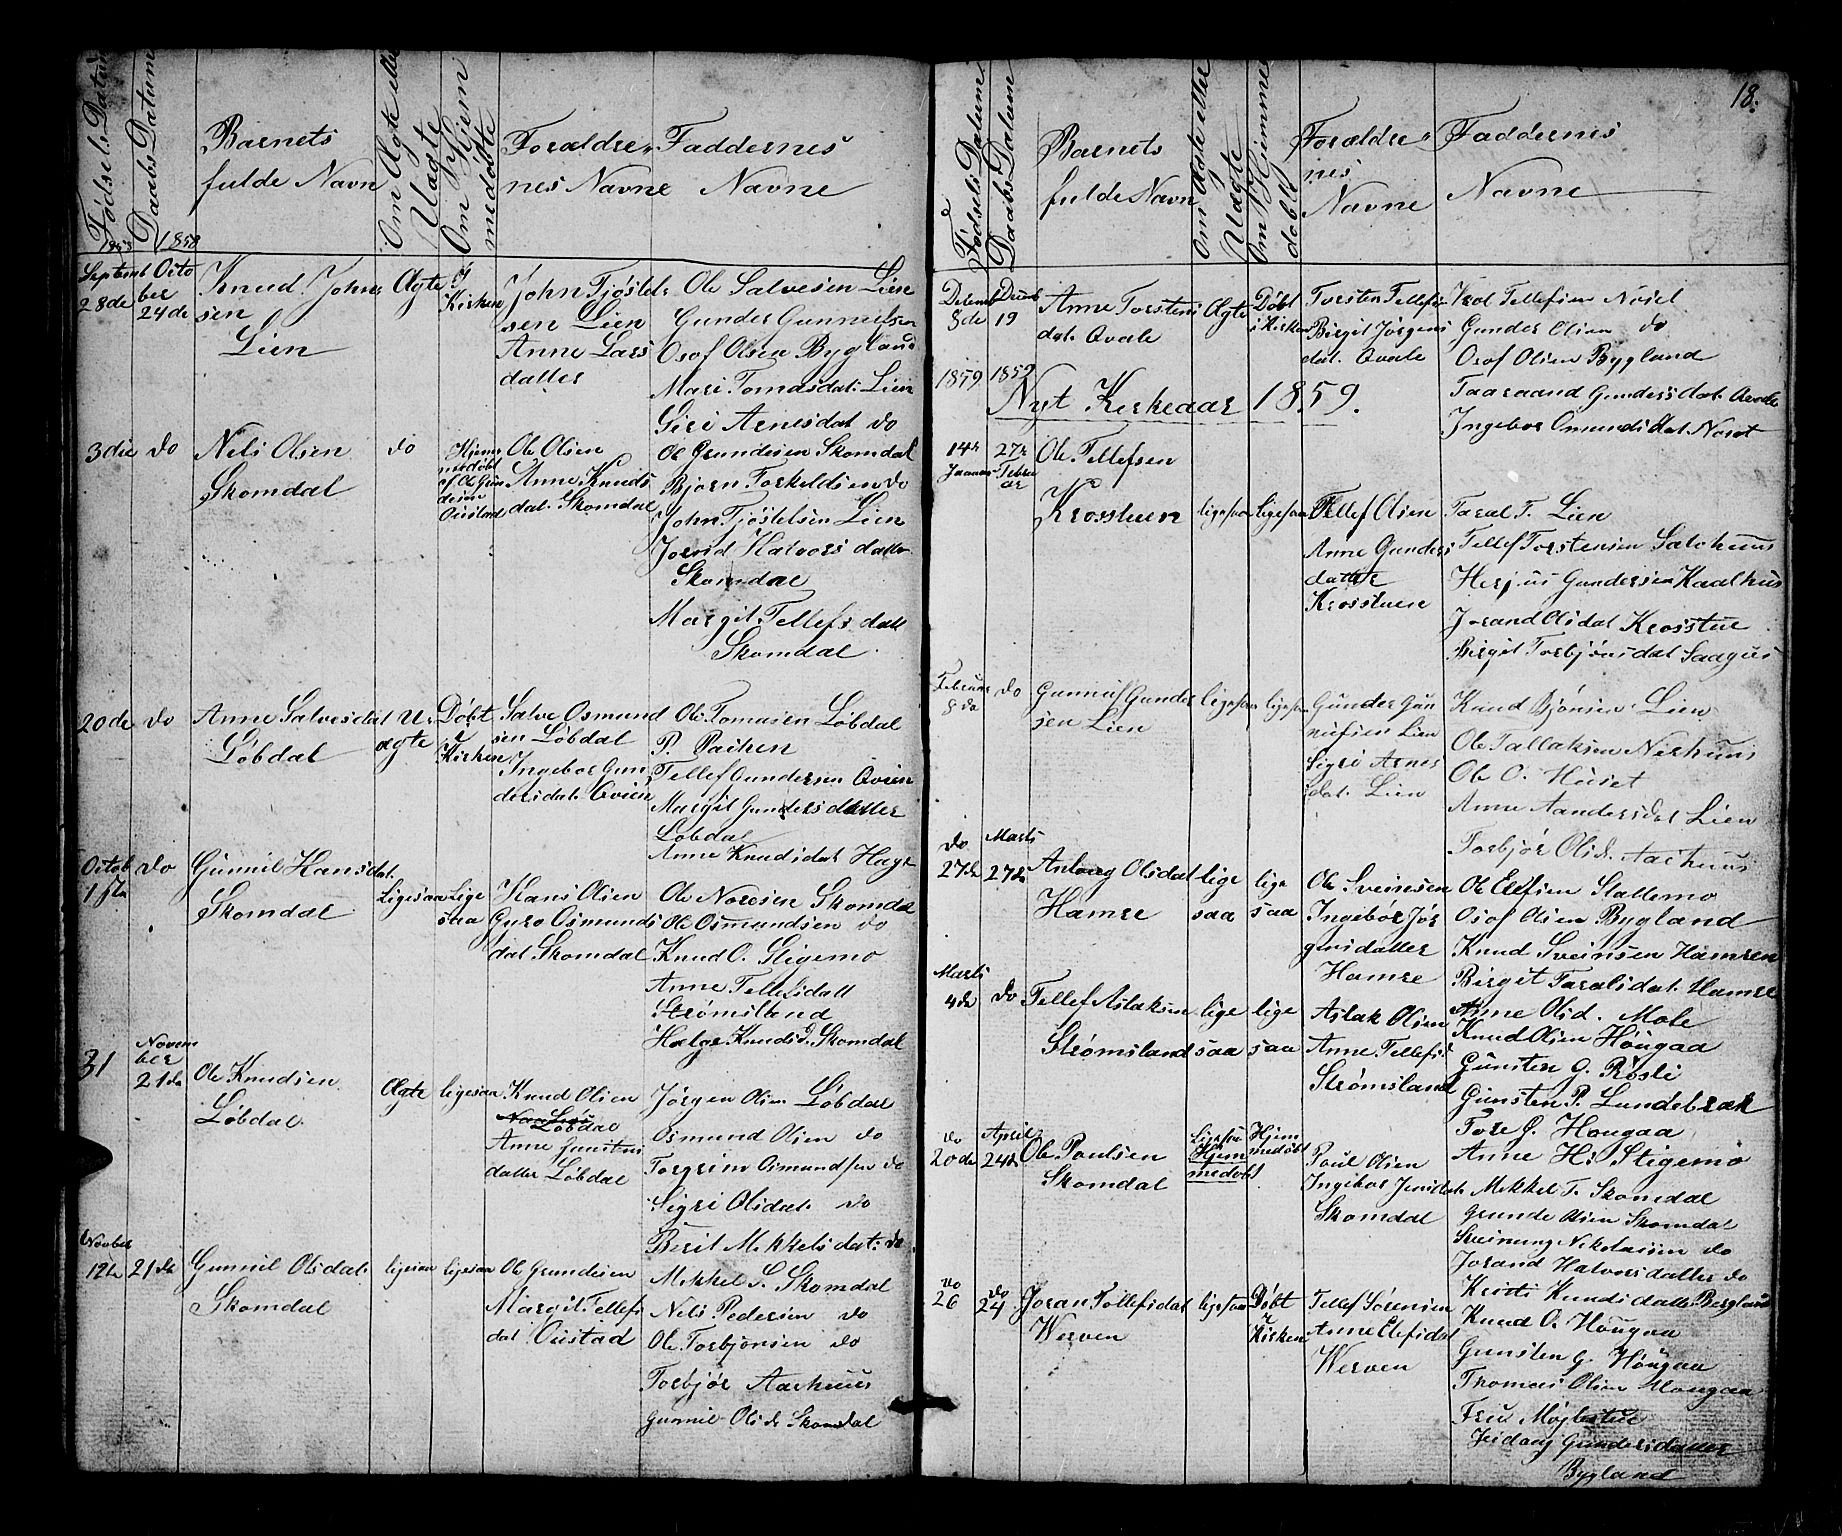 Fødsels Datum
1858
Daabs Datum
1858
Barnets
fulde Navn
Om Ægte eller
Uægte
Om Hjem
medøbte
Forældre
nes Navne
Faddernes
Navne
Septemb
28de
Octo
ber
24de
Knud Johns
sen
Lien
Ægte
i
Kirken
John Tjøstels
sen Lien
Anne Lars
datter
Ole Salvesen Lien
Gunder Gunnufsen
Osof Olsen Bygland
Mari Tomasdat. Lien
Siri Arnesdat do
3die
do
Nels Olsen
Skomdal
do
Hjem
medøbt
af Ole Gun
dersen
Oustad
Ole Olsen
Anne Knuds
dat. Skomdal
Ole Grundesen Skomdal
Bjørn Torkeldsen do
John Tjøstelsen Lien
Jorvid Halvorsdatter
Skomdal
Margit Tellefsdatt
Skomdal
20de
do
Anne Salvesdat
Løbdal
U
ægte
Døbt
i
Kirken
Salve Osmund
sen Løbdal
Ingebor Gun
dersdat. Qvien
Ole Tomasen Løbdal
P. Paiken
Tellef Gundersen Qvien
Margit Gundersdatter
Løbdal
Anne Knudsdat Hage
Octob
1ste
do
Gunnil Hansdat.
Skomdal
Ligesaa
Lige
saa
Hans Olsen
Gyro Osmunds
dat Skomdal
Ole Noresen Skomdal
Ole Osmundsen do
Knud O. Stigemo
Anne Tellefsdatt
Strømsland
Helge Knudsd. Skomdal
31
Novem
ber
21de
Ole Knudsen
Løbdal
Ægte
ligesaa
Knud Olsen
Løbdal
Anne Gunstens
datter Løbdal
Jørgen Olsen Løbdal
Osmund Olsen do
Torgrim Osmundsen do
Sigri Olsdat. do
Berit Mikkelsdat: do
Novber
12te
21de
Gunnil Olsdat.
Skomdal
ligesaa
ligesaa
Ole Grundesen
Margit Tellefs
dat Oustad
Mikkel S. Skomdal
Nels Pedersen do
Ole Torbjørnsen do
Torbjør Aarhuus
Gunnil Olsdr Skomdal
18.
Fødsels Datum
Daabs Datum
Barnets
fulde Navn
Om Ægte eller
Uægte
Om Hjemme
døbt
Forældre
nes
Navne
Faddernes
Navne
Decemb
8de
Decemb
19
Anne Torstens
dat. Qvale
Ægte
Døbt
i Kirken
Torsten Tellefsen
Birgit Jørgens
dat. Qvale
Tellefsen Noset
Gunder Olsen do
Osof Olsen Bygland
Taaraand Gundersdat. Qvale
Ingebor Omundsdat Noset
1859
1859
Nyt Kirkeaar 1859.
14de
Januar
27de
Febru
ar
Ole Tellefsen
Krosstuen
ligesaa
ligesaa
Tellef Olsen
Anne Gunders
datter
Krosstuen
Taral T. Lien
Tellef Torstensen Salthuus
Herjus Gundersen Kaalhus
Jorand Olsdat Krosstue
Birgit Torbjønsdat Saagnes
Februar
8de
do
Gunnuf Gunder
sen Lien
ligesaa
ligesaa
Gunder Gun
nufsen Lien
Sigri Arnes
dat. Lien
Knud Bjønsen Lien
Ole Tallaksen Nerhuus
Ole O. Huset
Anne Aandersdat Lien
Torbjør Olsd. Aarhuus
do
27de
Marts
27de
Anlaug Olsdat
Hamre
lige
saa
lige
saa
Ole Sveinsen
Ingebor Jør
gensdatter
Hamre
Ole Ellefsen Stallemo
Osof Olsen Bygland
Knud Sveinsen Hamren
Birgit Taralsdat. Hamre
Anne Olsd. Mole
Marts
4de
do
Tellef Aslaksen
Strømsland
lige
saa
lige
saa
Aslak Olsen
Anne Tellefsd
Strømsland
Knud Olsen Hougaa
Gunsten G. Røsli
Gunsten P. Lundebrek
Tore G. Hougaa
Anne H. Stigemo
do
20de
April
24de
Ole Paulsen
Skomdal
Ligesaa
Hjem
medøbt
Hjem
medøbt
Paul Olsen
Ingebor Jensdat.
Skomdal
Mikkel T. Skomdal
Grunde Olsen Skomdal
Sveinung Nikolaisen do
Jorand Halvorsdatter do
Kristi Knudsdatter Bergland
do
26
do
24
Joran Tellefsdat
Werven
ligesaa
Døbt
i
Kirken
Tellef Sørensen
Anne Elefsdat
Werven
Knud O. Hougaa
Gunsten G. Hougaa
Thomas Olsen Hougaa
Fru Møglestue
Gundersdatter
Bygland